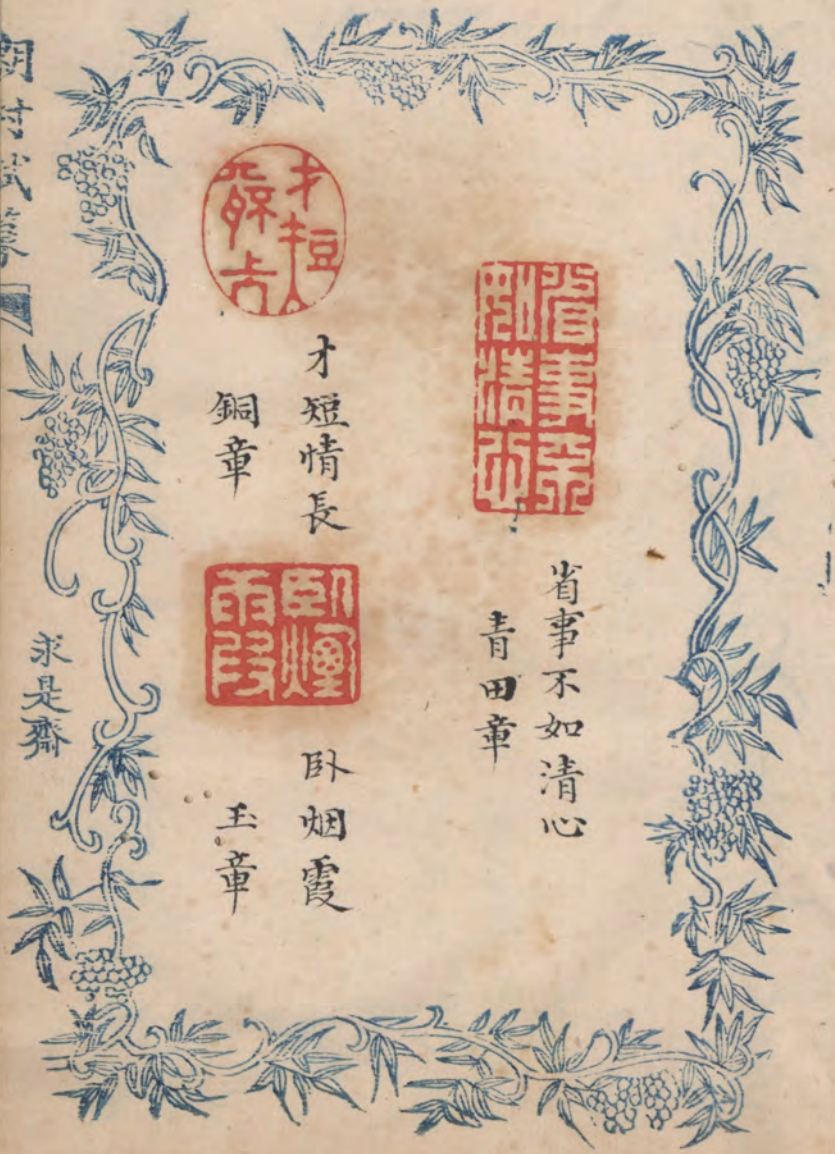 省事不如清心
省事不如清心
青田章
才短情長
才短情長
銅章
臥烟霞
臥烟霞
玉章
求是齋